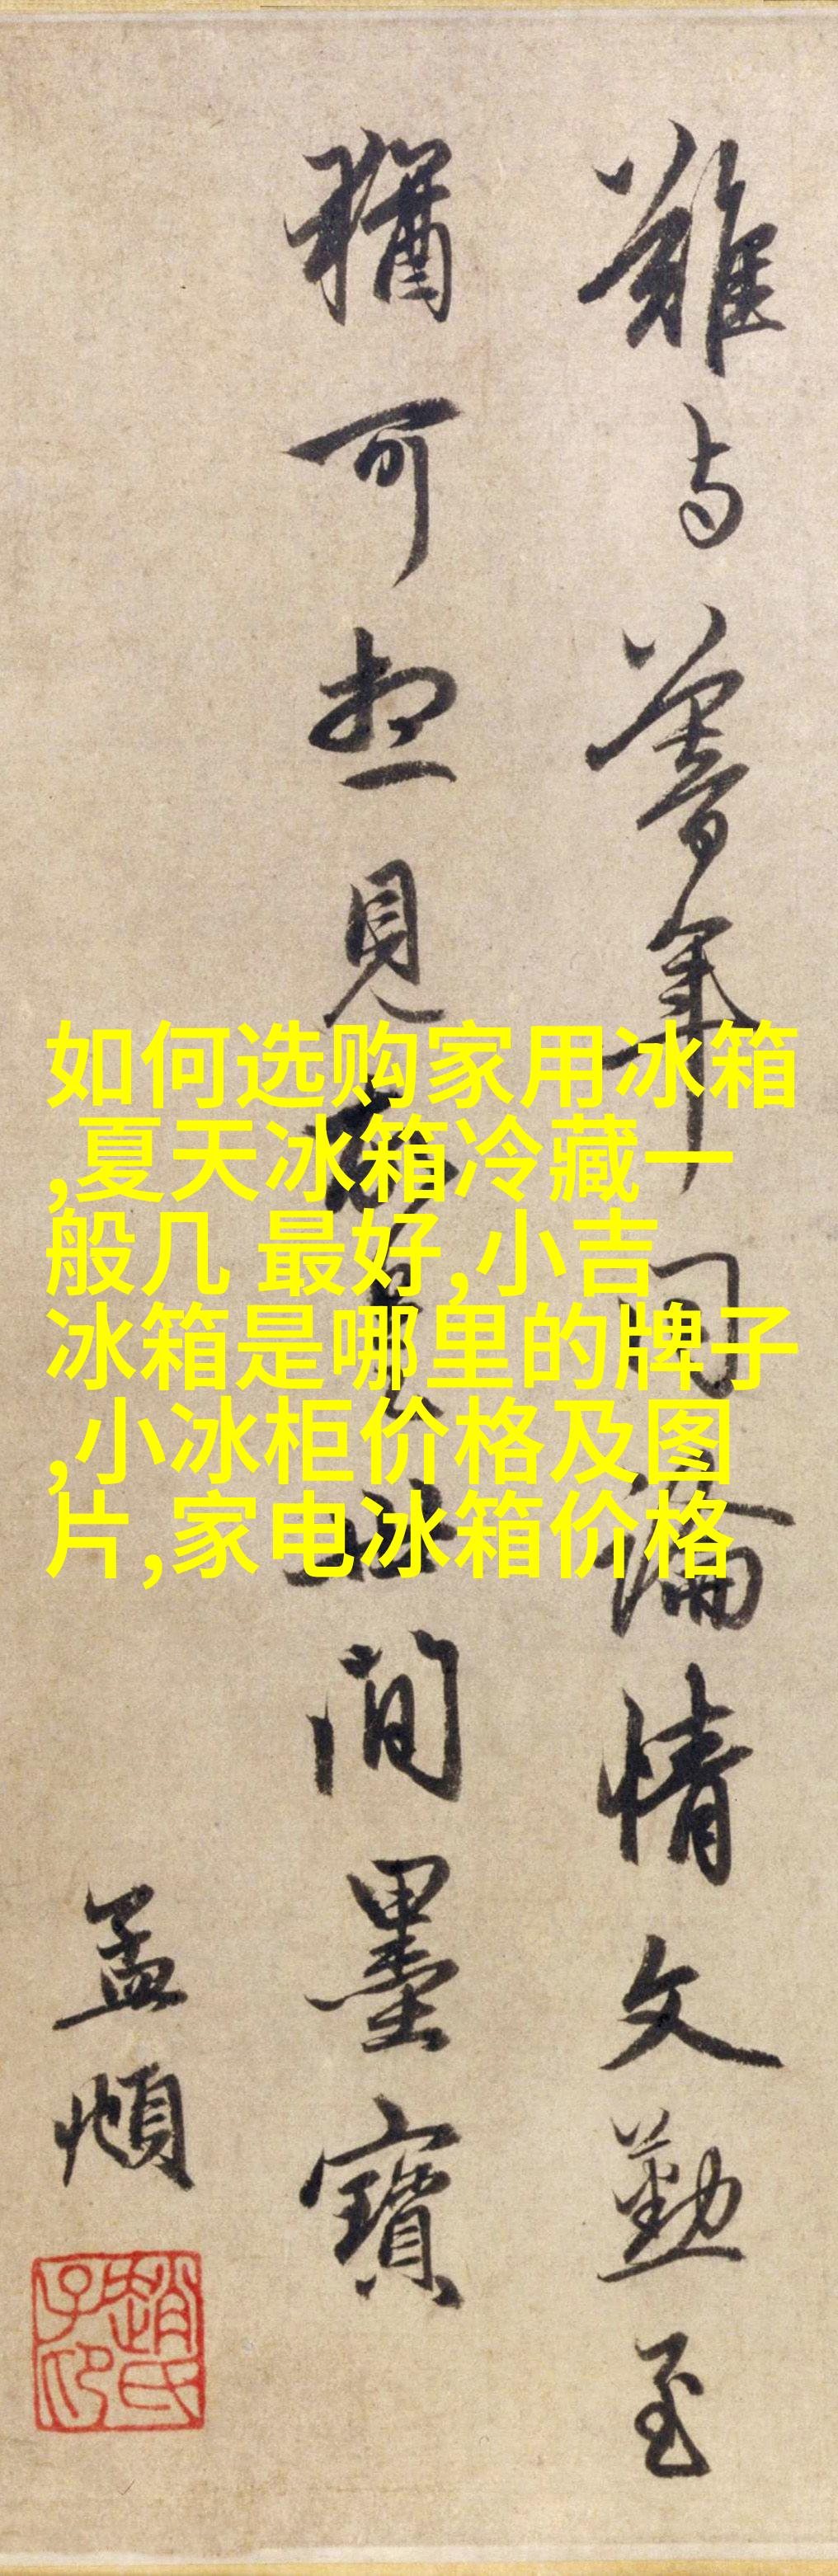 難与昔年同論情文勤至
猶可想見
间墨寳
孟頫
趙氏子印
如何选购家用冰箱
,夏天冰箱冷藏一
般几 最好,小吉
冰箱是哪里的牌子
,小冰柜价格及图
片,家电冰箱价格